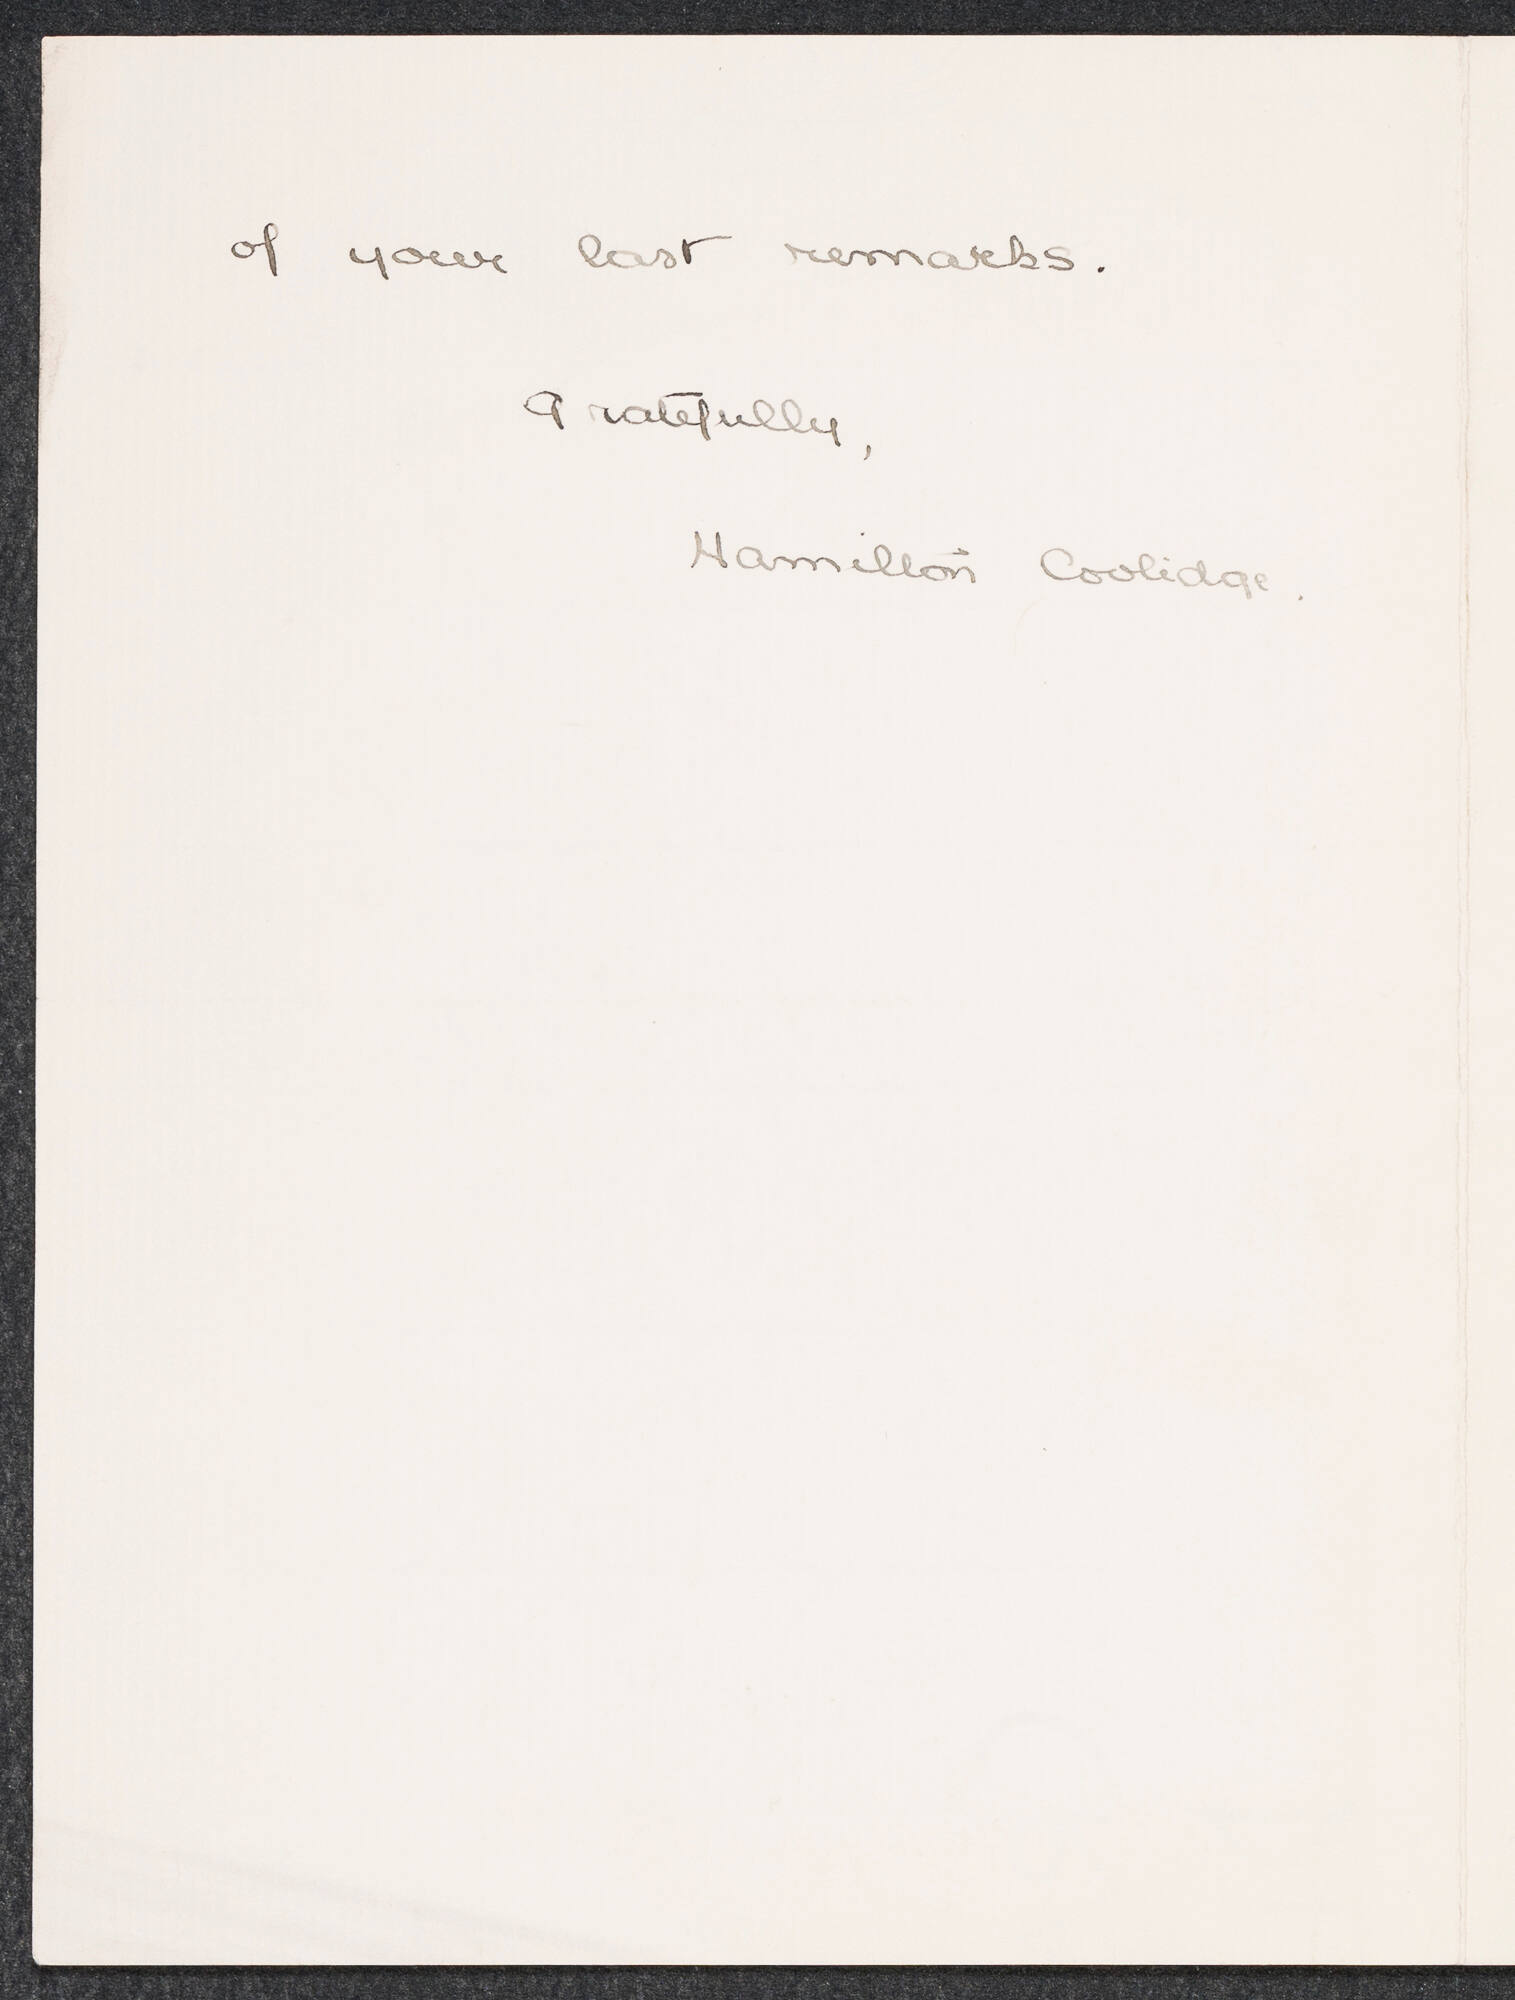 of your last remarks.
Gratefully,
Hamilton Coolidge.